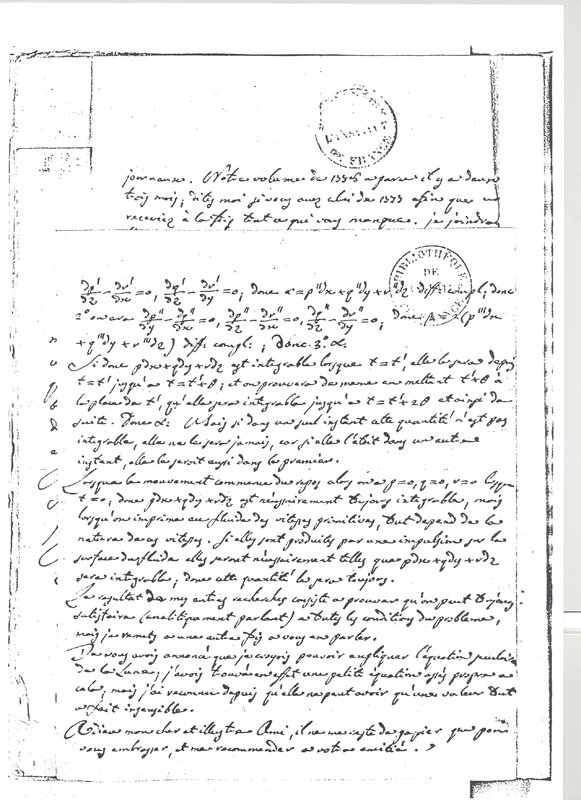 L'INSTITUT
DE FRANCE
journaux. Notre volume de 1776 a paru il y a deux ou
trois mois; dites moi si vous avez celui de 1775 afin que vous
receviez à la fois tout ce qui vous manque. je joindrai
BIBLIOTHÈQUE
DE
∂p'/∂z − ∂r'/∂x = 0, ∂q'/∂z − ∂r'/∂y = 0; donc α = p''dx + q''dy + r''dz diff. compl; donc
2° on aura ∂p''/∂y − ∂q''/∂x = 0, ∂p''/∂z − ∂r''/∂x = 0, ∂q''/∂z − ∂r''/∂y = 0; donc β = 2(p'''dx
+ q'''dy + r'''dz) diff. compl.; Donc. 3° &c.
Si donc pdx+qdy+rdz est integrable lorsque t=t', elle le sera depuis
t=t' jusqu'à t=t'+θ; et on prouvera de meme en mettant t'+θ à
la place de t', qu'elle sera integrable jusqu'à t=t'+2θ et ainsi de
suite. Donc &c. Mais si dans un seul instant cette quantité n'est pas
integrable, elle ne le sera jamais, car si elle l'étoit dans un autre
instant, elle le seroit aussi dans le premier.
Lorsque le mouvement commence du repos alors on a p=0, q=0, r=0 lorsque
t=0; donc pdx+qdy+rdz est nécessairement toujours integrable, mais
lorsqu'on imprime au fluide des vitesses primitives, tout depend de la
nature de ces vitesses. Si elles sont produites par une impulsion sur la
surface du fluide elles seront nécessairement telles que pdx+qdy+rdz
sera integrable; donc cette quantité le sera toujours.
Le resultat de mes autres recherches consiste à prouver qu'on peut toujours
satisfaire (analitiquement parlant) à toutes les conditions du probleme,
mais je remets à une autre fois à vous en parler.
Je vous avois annoncé que je croyois pouvoir expliquer l'équation seculaire
de la Lune; j'avois trouvé en effet une petite équation assés propre à
cela, mais j'ai reconnu depuis qu'elle ne peut avoir qu'une valeur tout
à fait insensible.
Adieu mon cher et illustre Ami, il ne me reste de papier que pour
vous embrasser, et me recommander à votre amitié.